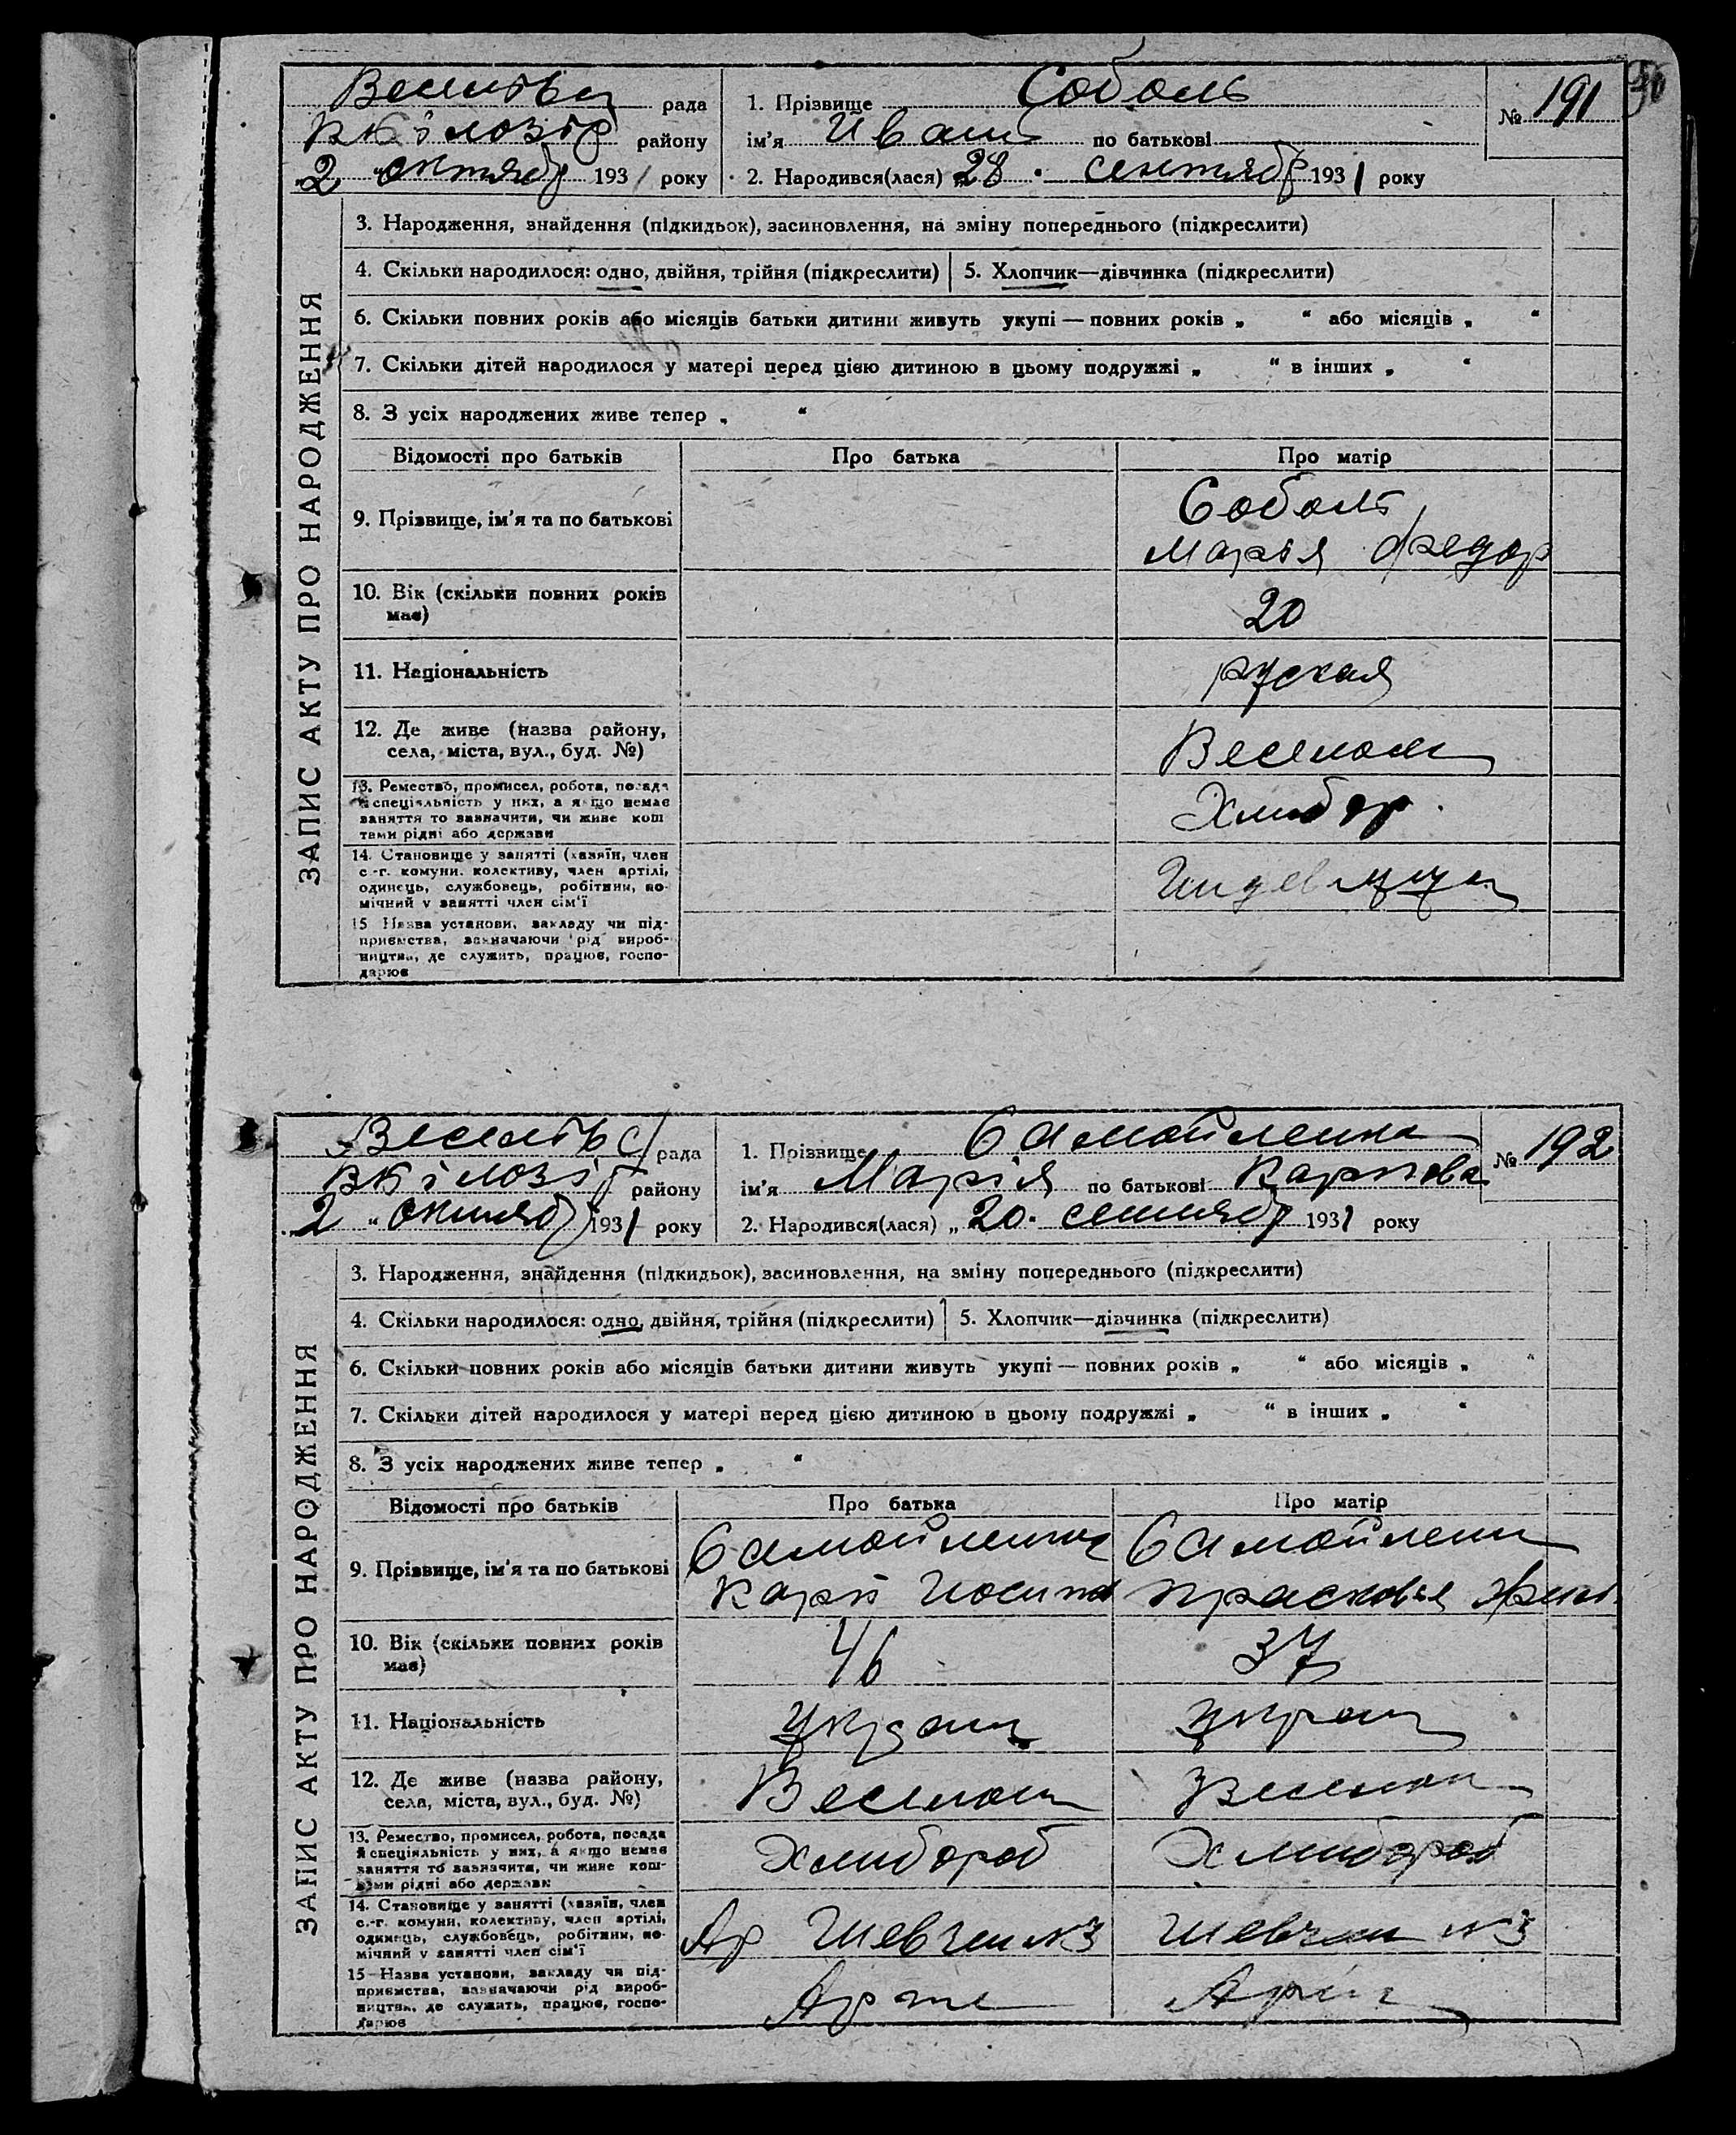 рада
району
2 октябр 1931 року
1. Прізвище Соболь
ім'я Иван по батькові
2. Народився(лася) „28 сентябр 1931 року
№ 191
ЗАПИС АКТУ ПРО НАРОДЖЕННЯ
3. Народження, знайдення (підкидьок), засиновлення, на зміну попереднього (підкреслити)
4. Скільки народилося: одно, двійня, трійня (підкреслити)
5. Хлопчик—дівчинка (підкреслити)
6. Скільки повних років або місяців батьки дитини живуть укупі — повних років „ “ або місяців „ “
7. Скільки дітей народилося у матері перед цією дитиною в цьому подружжі „ “ в інших „ “
8. З усіх народжених живе тепер „ “
Відомості про батьків
Про батька
Про матір
9. Прізвище, ім'я та по батькові
Соболь
Марья Федор
10. Вік (скільки повних років
має)
20
11. Національність
руская
12. Де живе (назва району,
села, міста, вул., буд. №)
13. Ремество, промисел, робота, посада
й спеціяльність у них, а якщо немає
заняття то зазначити, чи живе кош
тами рідні або держави
Хлибор
14. Становище у занятті (хазяїн, член
с.-г. комуни, колективу, член артілі,
одинець, службовець, робітник, по-
мічний у занятті член сім'ї
15 Назва установи, закладу чи під-
приємства, зазначаючи рід вироб-
ництва, де служить, працює, госпо-
дарює
рада
району
2 „ октябр 1931 року
1. Прізвище Самойленко
ім'я Марія по батькові Карповa
2. Народився(лася) „20 сентябр 1931 року
№ 192
ЗАПИС АКТУ ПРО НАРОДЖЕННЯ
3. Народження, знайдення (підкидьок), засиновлення, на зміну попереднього (підкреслити)
4. Скільки народилося: одно, двійня, трійня (підкреслити)
5. Хлопчик—дівчинка (підкреслити)
6. Скільки повних років або місяців батьки дитини живуть укупі — повних років „ “ або місяців „ “
7. Скільки дітей народилося у матері перед цією дитиною в цьому подружжі „ “ в інших „ “
8. З усіх народжених живе тепер „ “
Відомості про батьків
Про батька
Про матір
9. Прізвище, ім'я та по батькові
Самойленко
Карп Иосипов
Самойлен
Прасковья
10. Вік (скільки повних років
має)
46
37
11. Національність
украин
украин
12. Де живе (назва району,
села, міста, вул., буд. №)
13. Ремество, промисел, робота, посада
й спеціяльність у них, а якщо немає
заняття то зазначити, чи живе кош-
тами рідні або держави
Хлибороб
Хлибороб
14. Становище у занятті (хазяїн, член
с.-г. комуни, колективу, член артілі,
одинець, службовець, робітник, по-
мічний у занятті член сім'ї
Ар Шевчен №3
Шевчен №3
15 Назва установи, закладу чи під-
приємства, зазначаючи рід вироб-
ництва, де служить, працює, госпо-
дарює